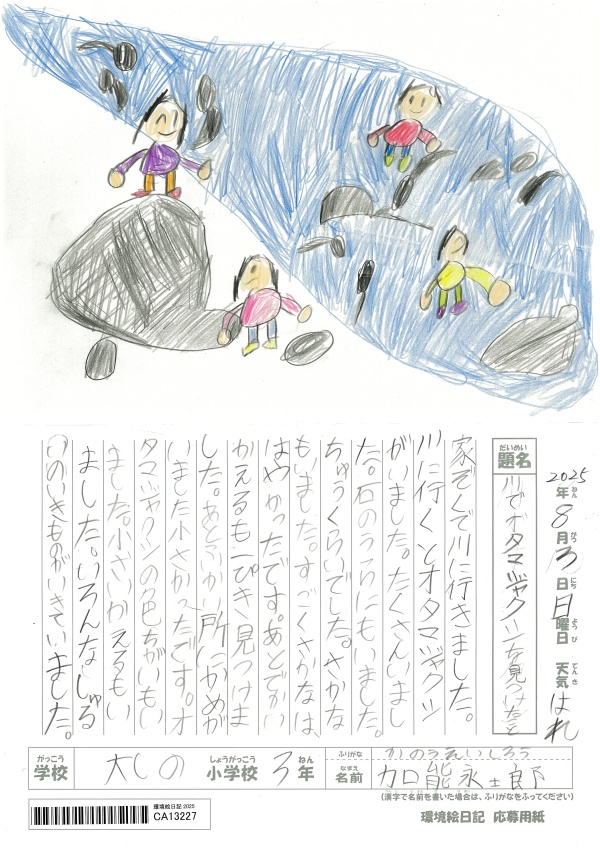 2025年8月3日日曜日 天気はれ
ねん がつ にち ようび てんき
だいめい
題名
川でオタマジャクシを見つけたこと
家ぞくで川に行きました。
川に行くとオタマジャクシ
がいました。たくさんいまし
た。石のうらにもいました
ちゅうくらいでした。さかな
もいました。すごくさかなは
はやかったです。あとでかい
かえるも一ぴき見つけま
した。あとふかい所にかめが
いました小さかったです。オ
タマジャクシの色ちがいもい
ました。小さいかえるもい
ました。いろんなしゅる
いのいきものがいきていました。
がっこう しょうがっこう ねん
学校 大しの 小学校 3年
ふりがな かのうえいしろう
なまえ
名前 加能永士郎
(漢字で名前を書いた場合は、ふりがなをふってください)
環境絵日記 2025
CA13227
環境絵日記 応募用紙